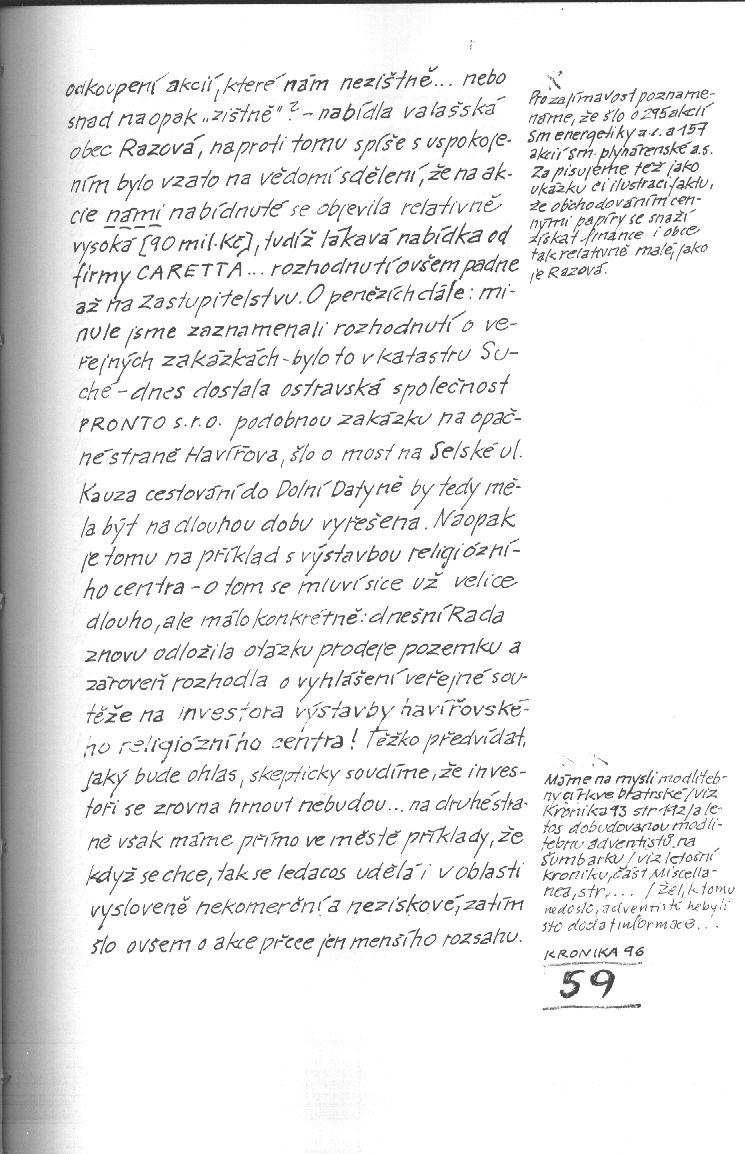 odkoupení akcií, které nám nezištně... nebo
snad naopak „zištně"? - nabídla valašská
obec Razová, naproti tomu spíše s uspokoje-
ním bylo vzato na vědomí sdělení, že na ak-
cie námi nabídnuté se objevila relativně
vysoká [90 mil. Kč], tudíž lákavá nabídka od
firmy CARETTA... rozhodnutí ovšem padne
až na Zastupitelstvu. O penězích dále: mi-
nule jsme zaznamenali rozhodnutí o ve-
řejných zakázkách - bylo to v katastru Su-
ché - dnes dostala ostravská společnost
PRONTO s.r.o. podobnou zakázku na opač-
né straně Havířova, šlo o most na Selské ul.
Kauza cestování do Dolní Datyně by tedy mě-
la být na dlouhou dobu vyřešena. Naopak
je tomu na příklad s výstavbou religiózní-
ho centra - o tom se mluví sice už velice
dlouho, ale málo konkrétně: dnešní Rada
znovu odložila otázku prodeje pozemku a
zároveň rozhodla o vyhlášení veřejné sou-
těže na investora výstavby havířovské-
ho religiózního centra! Těžko předvídat,
jaký bude ohlas, skepticky soudíme, že inves-
toři se zrovna hrnout nebudou... na druhé stra-
ně však máme přímo ve městě příklady, že
když se chce, tak se ledacos udělá i v oblasti
vysloveně nekomerční a neziskové, zatím
šlo ovšem o akce přece jen menšího rozsahu.
Pro zajímavost pozname-
náme, že šlo o 295 akcií
Sm energetiky a.s. a 157
akcií Sm. plynárenské a.s.
Zapisujeme též jako
ukázku či ilustraci faktu,
že obchodováním cen-
nými papíry se snaží
získat finance i obce
tak relativně malé, jako
je Razová.
Máme na mysli modliteb-
ny církve bratrské /viz
Kronika 93 str 192/ a le-
tos dobudovanou modli-
tebnu adventistů na
Šumbarku /viz letošní
kroniku, část Miscella-
nea, str,... / Žel, k tomu
nedošlo, adventisté nebyli
sto dodat informace...
KRONIKA 96
59